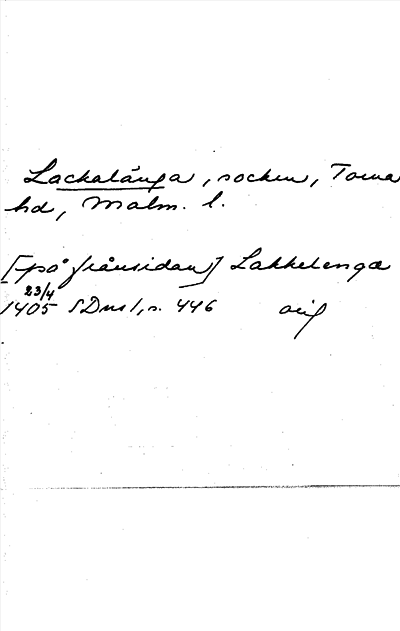 Lackalänga, socken, Torna
hd, Malm. l.
[på frånsidan] Lakkelenga
23/4
1405 SDns 1, s. 446 orig